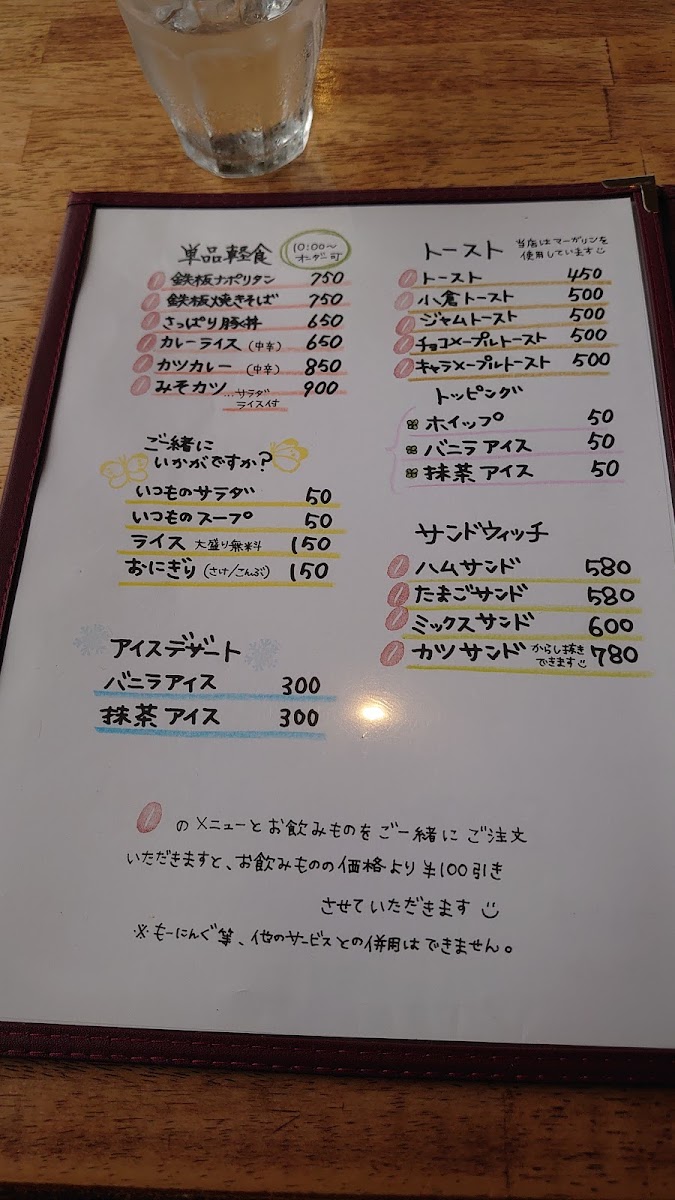 単品軽食
10:00〜
オーダー可
鉄板ナポリタン 750
鉄板焼きそば 750
さっぱり豚丼 650
カレーライス (中辛) 650
カツカレー (中辛) 850
みそカツ …サラダ 900
ライス付
ご一緒に
いかがですか?
いつものサラダ 50
いつものスープ 50
ライス 大盛り無料 150
おにぎり (さけ/こんぶ) 150
アイスデザート
バニラアイス 300
抹茶アイス 300
トースト 当店はマーガリンを
使用しています
トースト 450
小倉トースト 500
ジャムトースト 500
チョコメープルトースト 500
キャラメープルトースト 500
トッピング
ホイップ 50
バニラアイス 50
抹茶アイス 50
サンドウィッチ
ハムサンド 580
たまごサンド 580
ミックスサンド 600
カツサンド からし抜き 780
できます
のメニューとお飲みものをご一緒にご注文
いただきますと、お飲みものの価格より¥100引き
させていただきます
※もーにんぐ等、他のサービスとの併用はできません。